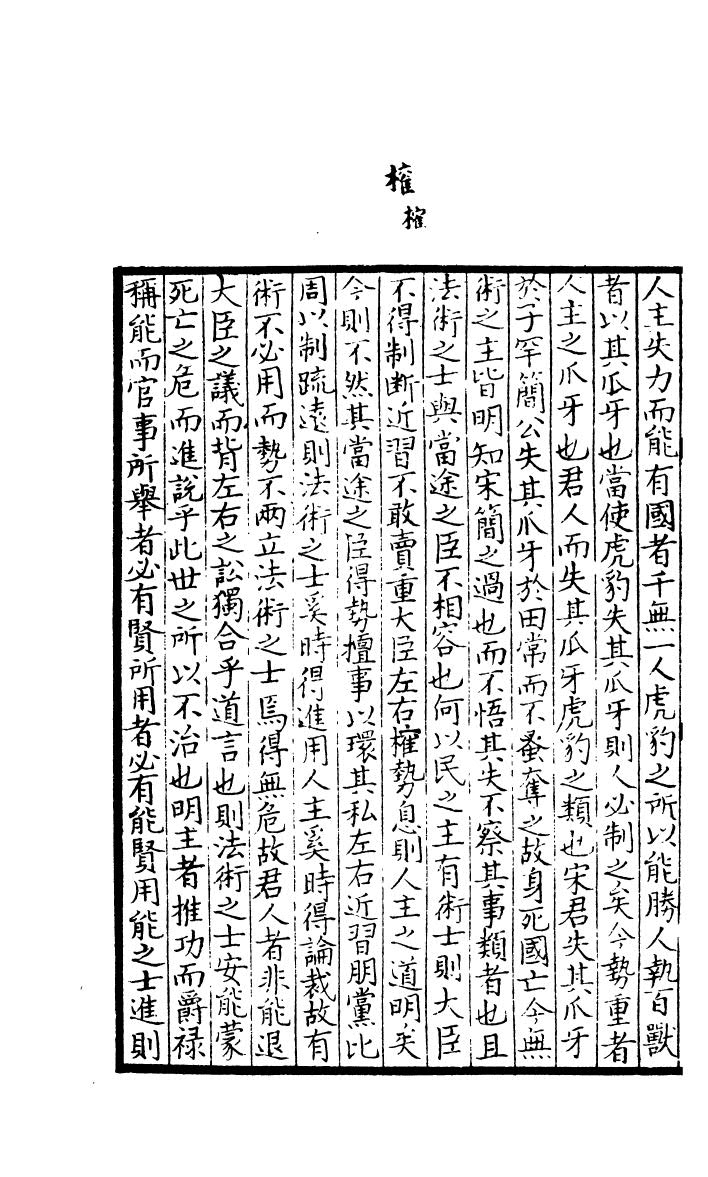 榷
榷
人主失力而能有國者千無一人虎豹之所以能勝人執百獸
者以其爪牙也當使虎豹失其爪牙則人必制之矣今勢重者
人主之爪牙也君人而失其爪牙虎豹之類也宋君失其爪牙
於子罕簡公失其爪牙於田常而不蚤奪之故身死國亡今無
術之主皆明知宋簡之過也而不悟其失不察其事類者也且
法術之士與當途之臣不相容也何以民之主有術士則大臣
不得制斷近習不敢賣重大臣左右榷勢息則人主之道明矣
今則不然其當途之臣得勢擅事以環其私左右近習朋黨比
周以制疏遠則法術之士奚時得進用人主奚時得論裁故有
術不必用而勢不兩立法術之士焉得無危故君人者非能退
大臣之議而背左右之訟獨合乎道言也則法術之士安能蒙
死亡之危而進說乎此世之所以不治也明主者推功而爵祿
稱能而官事所舉者必有賢所用者必有能賢用能之士進則